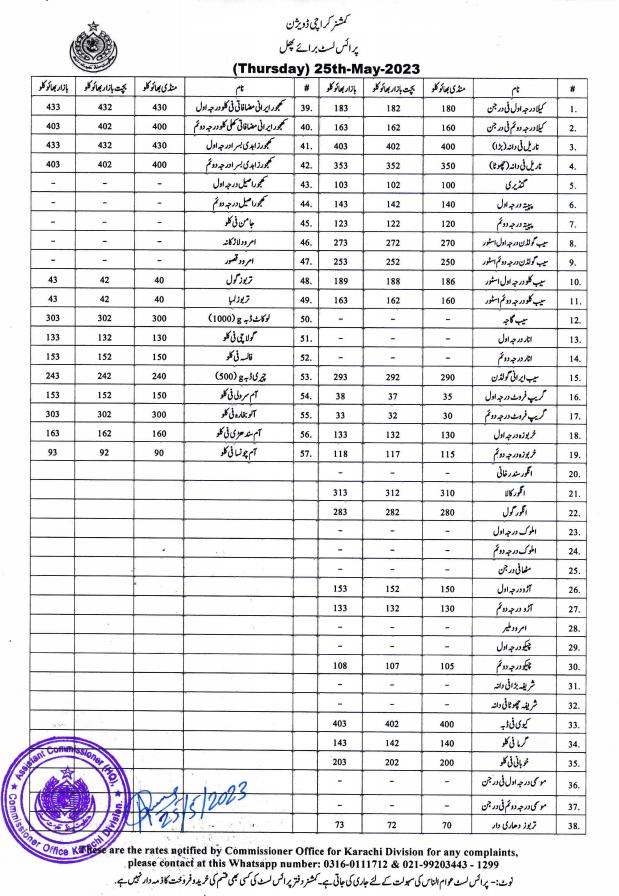 کمشنر کراچی ڈویژن
پرائس لسٹ برائے پھل
(Thursday) 25th-May-2023
# نام منڈی بھائو کلو بچت بازار بھائو کلو بازار بھائو کلو # نام منڈی بھائو کلو بچت بازار بھائو کلو بازار بھائو کلو
1. کیلا درجہ اول فی درجن 180 182 183 39. کھجور ایرانی مضافاتی فی کلو درجہ اول 430 432 433
2. کیلا درجہ دوئم فی درجن 160 162 163 40. کھجور ایرانی مضافاتی کھلی کلو درجہ دوئم 400 402 403
3. ناریل فی دانہ (بڑا) 400 402 403 41. کھجور زاہدی بسرا درجہ اول 430 432 433
4. ناریل فی دانہ (چھوٹا) 350 352 353 42. کھجور زاہدی بسرا درجہ دوئم 400 402 403
5. گنڈیری 100 102 103 43. کھجور اصیل درجہ اول – – –
6. پپیتہ درجہ اول 140 142 143 44. کھجور اصیل درجہ دوئم – – –
7. پپیتہ درجہ دوئم 120 122 123 45. جامن فی کلو – – –
8. سیب گولڈن درجہ اول اسٹور 270 272 273 46. امرود لاڑکانہ – – –
9. سیب گولڈن درجہ دوئم اسٹور 250 252 253 47. امرود قصور – – –
10. سیب کلو درجہ اول اسٹور 186 188 189 48. تربوز گول 40 42 43
11. سیب کلو درجہ دوئم اسٹور 160 162 163 49. تربوز لمبا 40 42 43
12. سیب گاچہ – – – 50. لوکاٹ ڈبہ g (1000) 300 302 303
13. انار درجہ اول – – – 51. گولاچی فی کلو 130 132 133
14. انار درجہ دوئم – – – 52. فالسہ فی کلو 150 152 153
15. سیب ایرانی گولڈن 290 292 293 53. چیری ڈبہ g (500) 240 242 243
16. گریپ فروٹ درجہ اول 35 37 38 54. آم سرولی فی کلو 150 152 153
17. گریپ فروٹ درجہ دوئم 30 32 33 55. آلو بخارہ فی کلو 300 302 303
18. خربوزہ درجہ اول 130 132 133 56. آم سندھڑی فی کلو 160 162 163
19. خربوزہ درجہ دوئم 115 117 118 57. آم چونسا فی کلو 90 92 93
20. انگور سندر خانی – – –
21. انگور کالا 310 312 313
22. انگور گول 280 282 283
23. املوک درجہ اول – – –
24. املوک درجہ دوئم – – –
25. مٹھا فی درجن – – –
26. آڑو درجہ اول 150 152 153
27. آڑو درجہ دوئم 130 132 133
28. امرود ملیر – – –
29. چیکو درجہ اول – – –
30. چیکو درجہ دوئم 105 107 108
31. شریفہ بڑا فی دانہ – – –
32. شریفہ چھوٹا فی دانہ – – –
33. کیوی فی ڈبہ 400 402 403
34. گرما فی کلو 140 142 143
35. خوبانی فی کلو 200 202 203
36. موسمی درجہ اول فی درجن – – –
37. موسمی درجہ دوئم فی درجن – – –
38. تربوز دھاری دار 70 72 73
Assistant Commissioner (HQ),
Commissioner Office Karachi Division.
25/5/2023
These are the rates notified by Commissioner Office for Karachi Division for any complaints,
please contact at this Whatsapp number: 0316-0111712 & 021-99203443 - 1299
نوٹ:- یہ پرائس لسٹ عوام الناس کی سہولت کے لئے جاری کی جاتی ہے۔ کمشنر دفتر پرائس لسٹ کی کسی بھی قسم کی خرید و فروخت کا ذمہ دار نہیں ہے۔